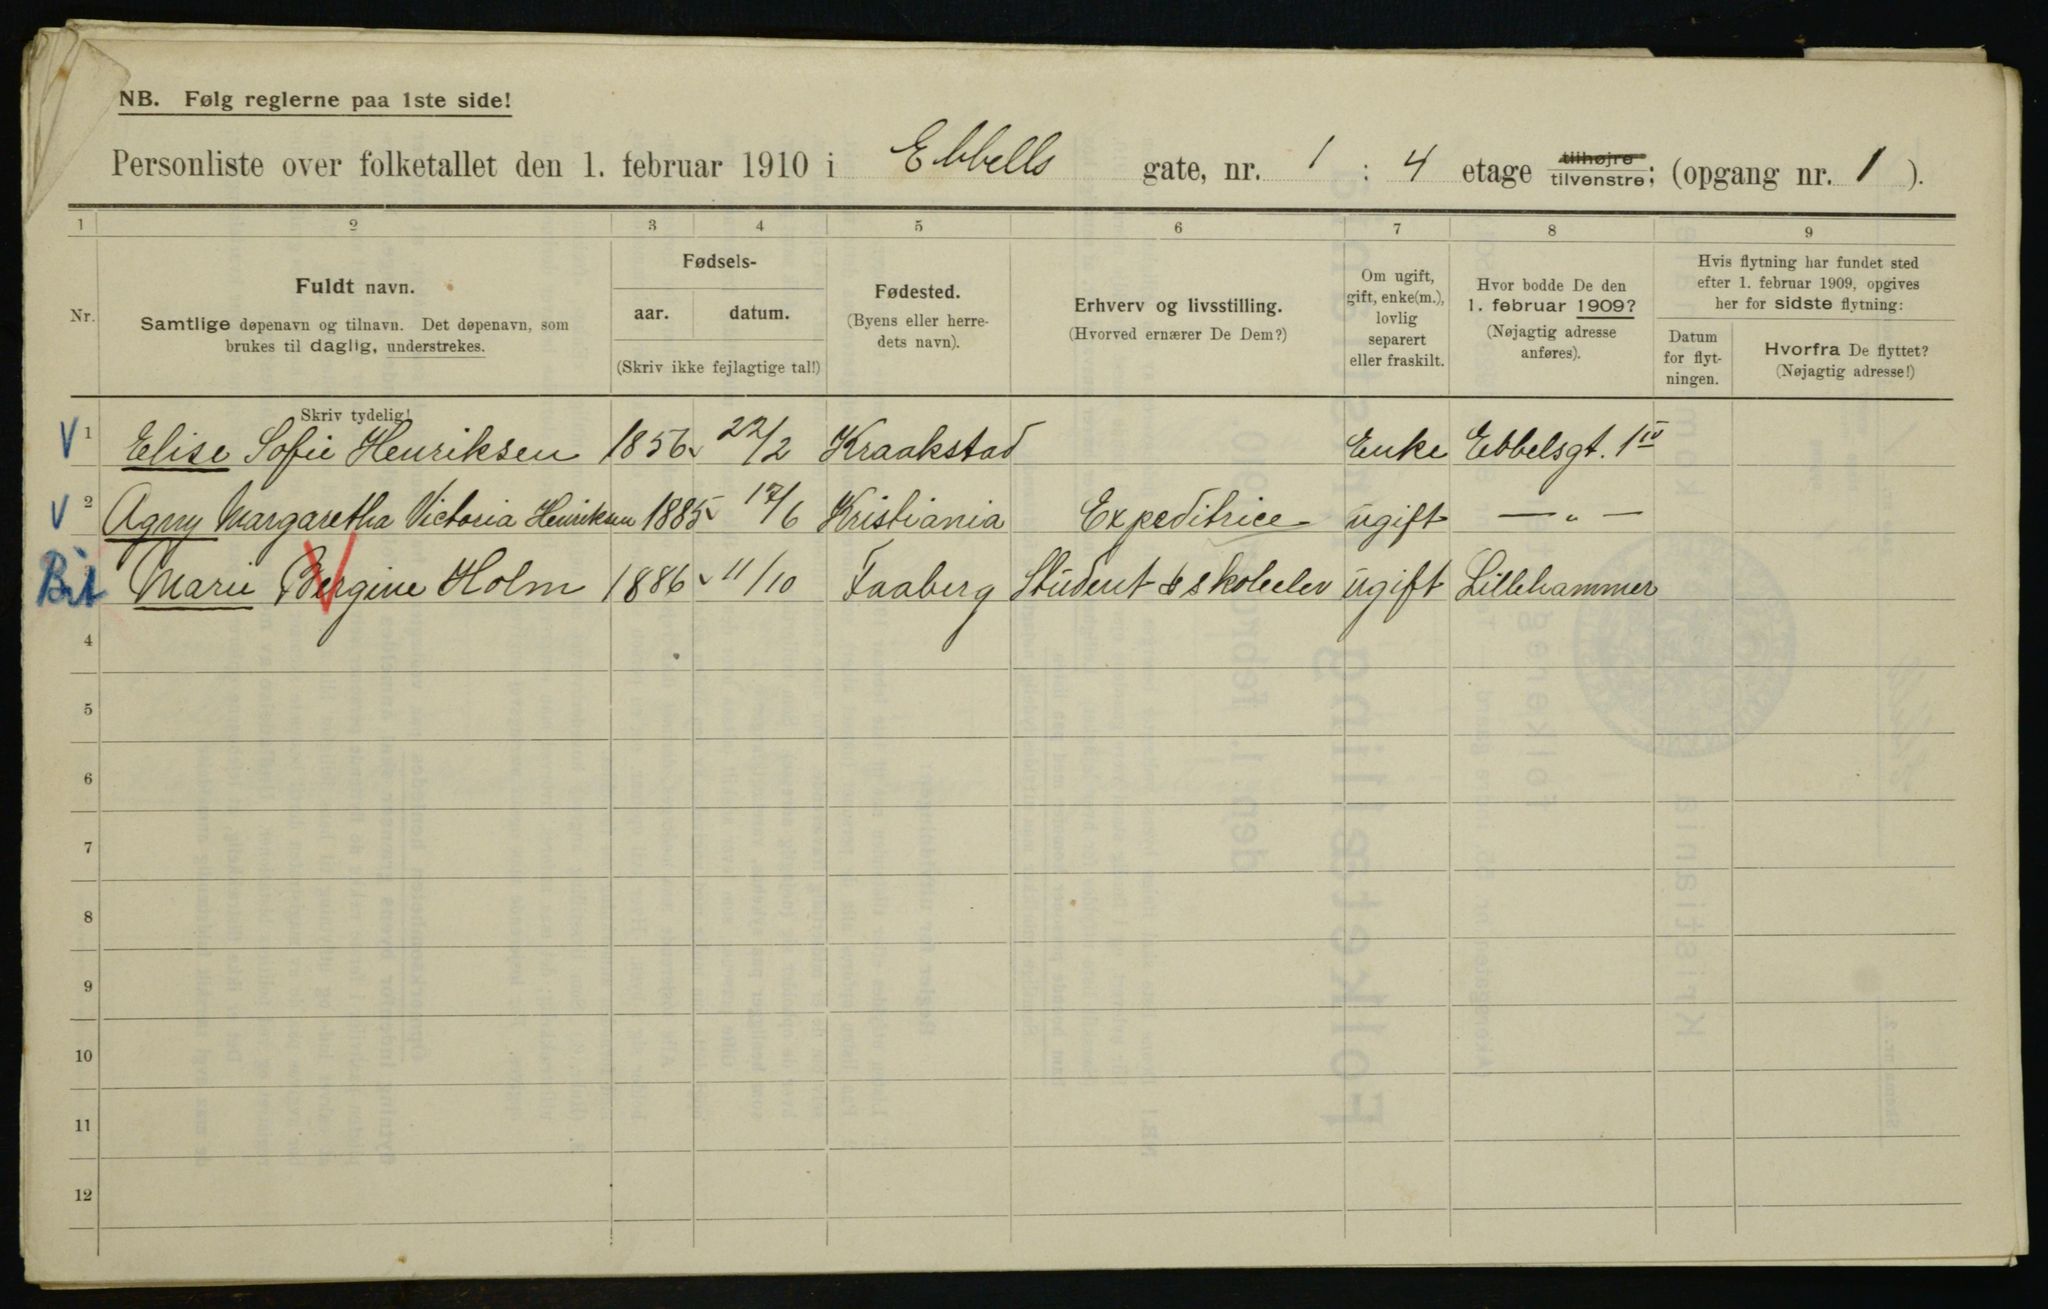 NB. Følg reglerne paa 1ste side!
Personliste over folketallet den 1. februar 1910 i Ebbells gate, nr. 1 : 4 etage tilhøjre tilvenstre; (opgang nr. 1 ).
1 2 3 4 5 6 7 8 9
Nr.
Fuldt navn.
Samtlige døpenavn og tilnavn. Det døpenavn, som
brukes til daglig, understrekes.
Skriv tydelig!
Fødsels-
aar. datum.
(Skriv ikke fejlagtige tal!)
Fødested.
(Byens eller herre-
dets navn).
Erhverv og livsstilling.
(Hvorved ernærer De Dem?)
Om ugift,
gift, enke(m.),
lovlig
separert
eller fraskilt.
Hvor bodde De den
1. februar 1909?
(Nøjagtig adresse
anføres).
Hvis flytning har fundet sted
efter 1. februar 1909, opgives
her for sidste flytning:
Datum
for flyt-
ningen.
Hvorfra De flyttet?
(Nøjagtig adresse!)
V 1 Elise Sofie Henriksen 1856 22/2 Kraakstad Enke Ebbelsgt. 1 IV
V 2 Agny Margaretha Victoria Henriksen 1885 17/6 Kristiania Expeditrice ugift — „ —
Marie Bergine Holm 1886 11/10 Faaberg Student skoleelev ugift Lillehammer
4
5
6
7
8
9
10
11
12